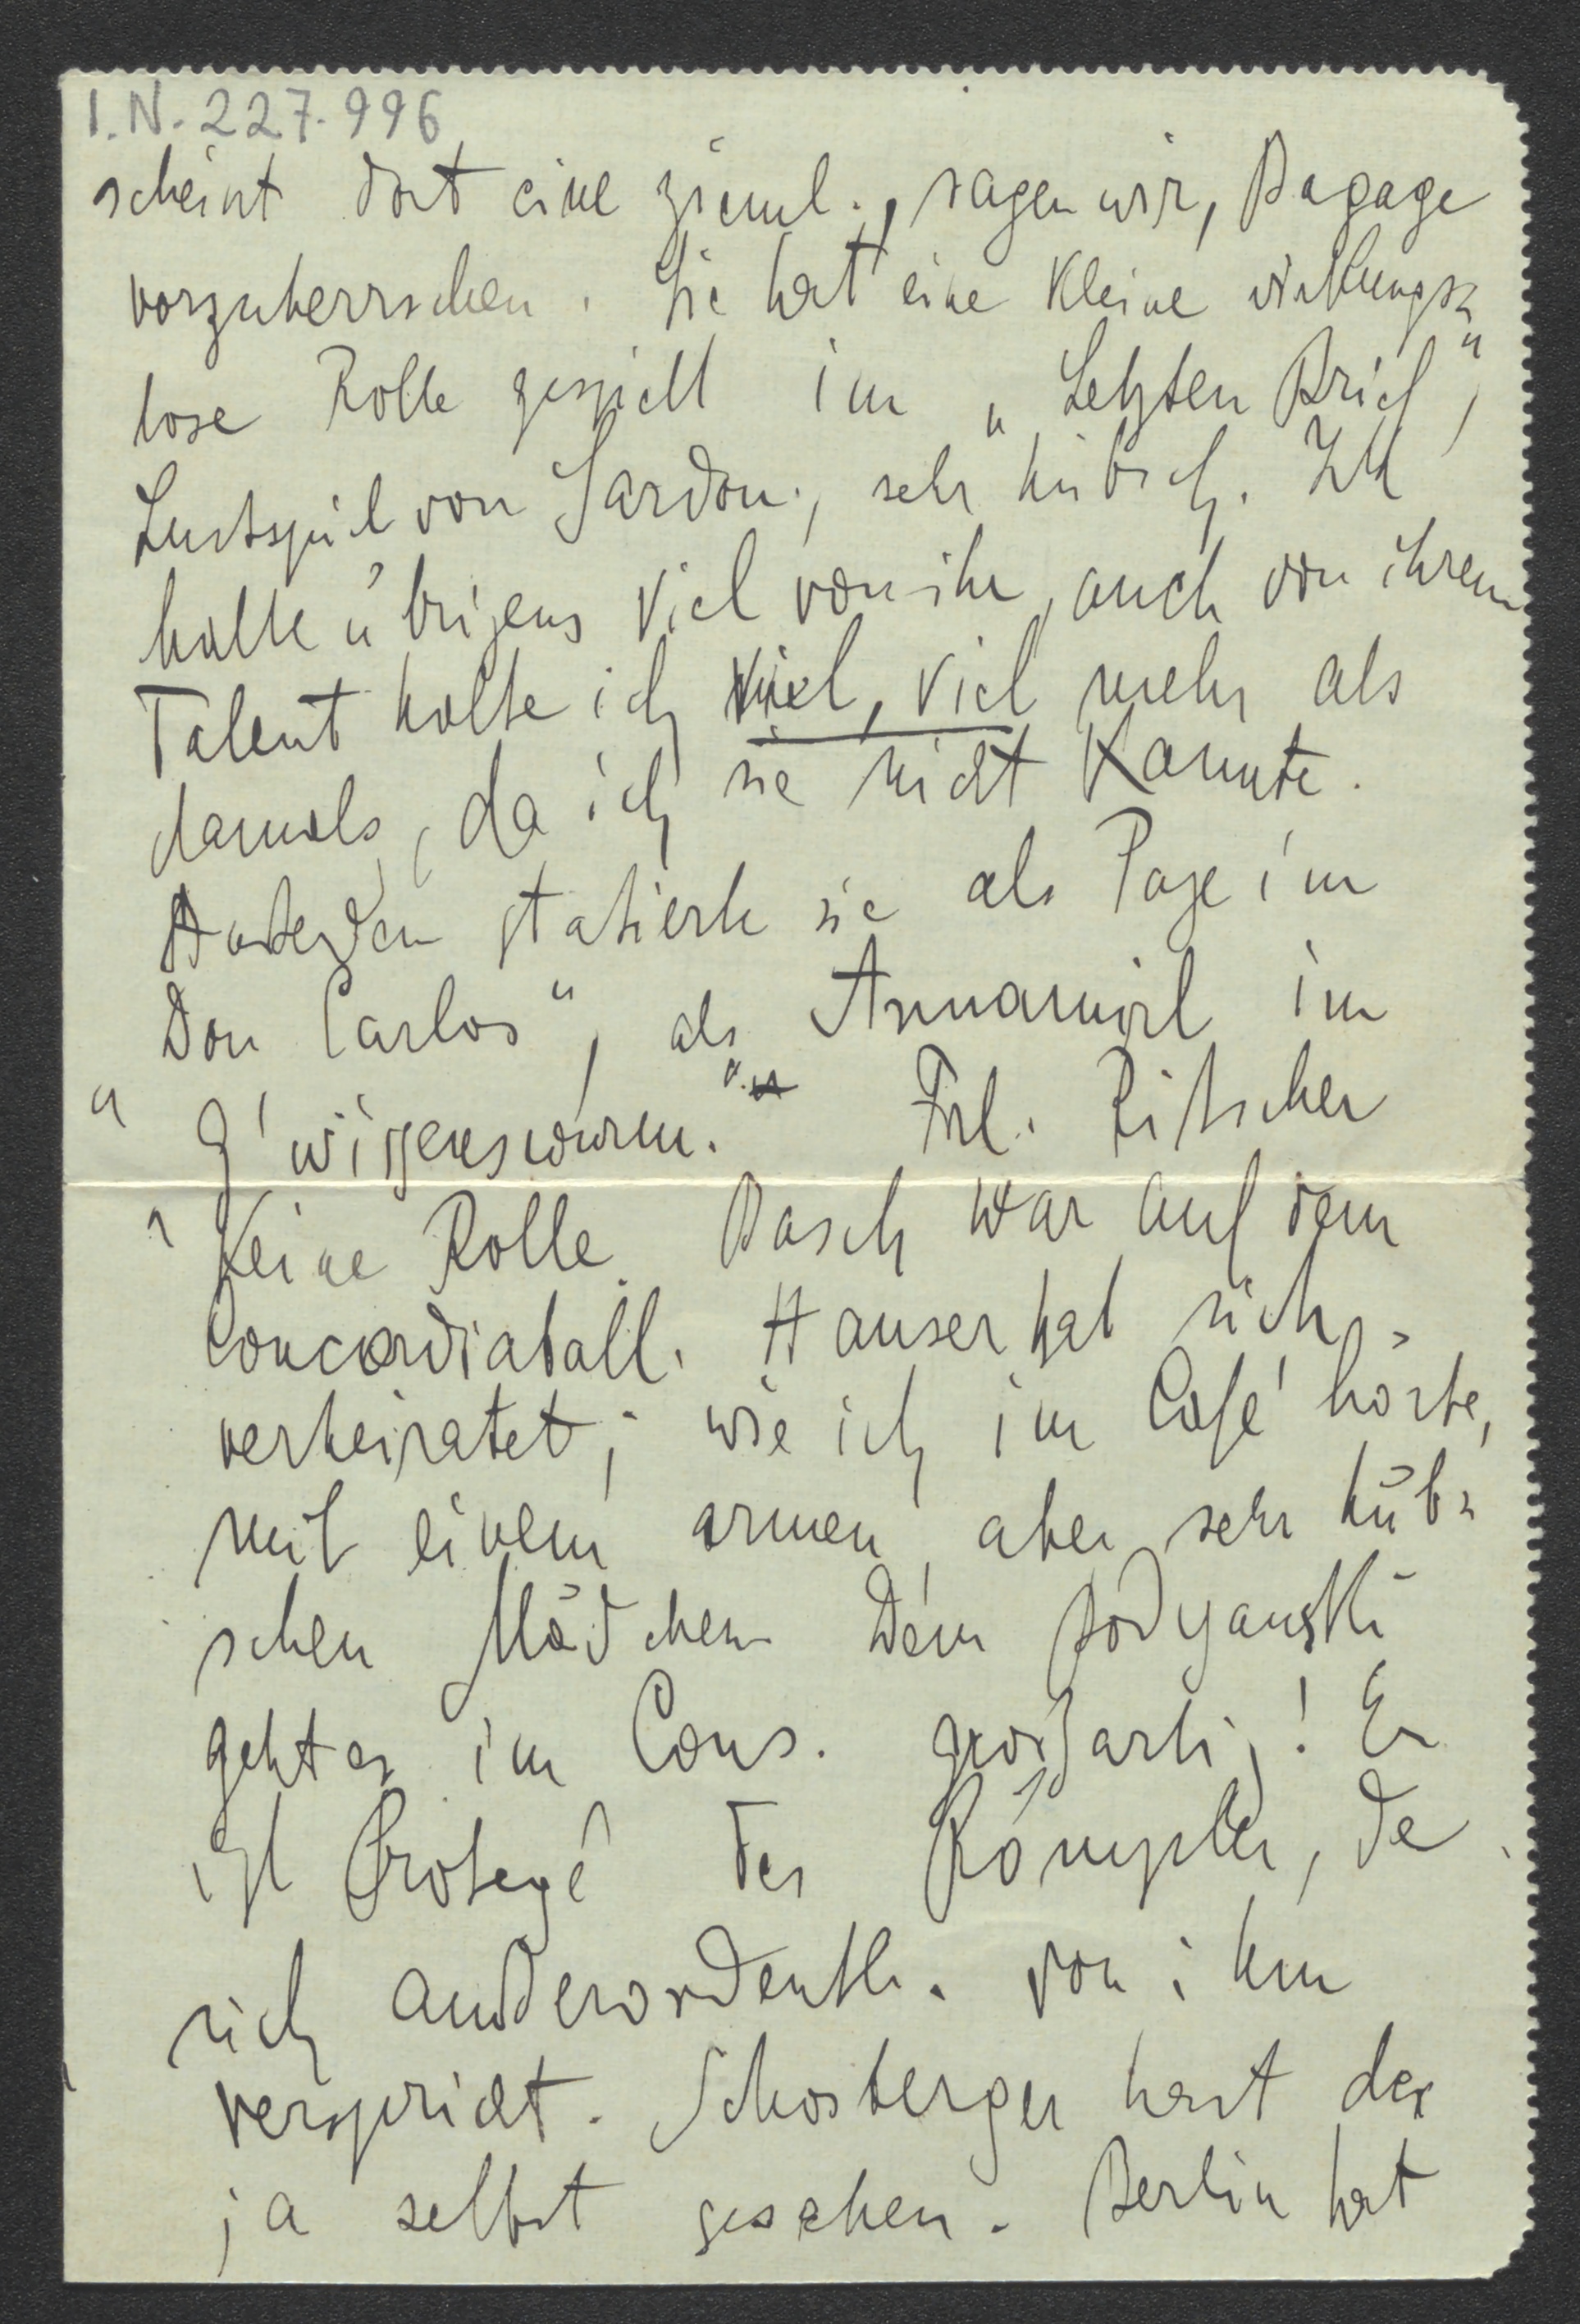 I.N. 227.996
scheint dort eine zieml., sagen wir, Bagage
vorzuherrschen. Sie hat eine kleine wirkungs=
lose Rolle gespielt im „Letzten Brief",
Lustspiel von Sardou, sehr hübsch. Ich
halte übrigens viel von ihr, auch von ihrem
Talent halte ich viel, viel mehr als
damals, da ich sie nicht kannte.
Außerdem statierte sie als Page im
Don Carlos", als Annamirl im
„G'wissenswurm." Frl. Ritscher
keine Rolle. Basch war auf dem
Concordiaball. Hauser hat sich
verheiratet; wie ich im Café hörte,
mit einem armen, aber sehr hüb=
schen Mädchen. Dem Bodyanski
geht es im Cons. großartig! Er
ist Protegé des Römpler, de
sich außerordentl. von ihm
verspricht. Schosberger hast du
ja selbst gesehen. Berlin hat